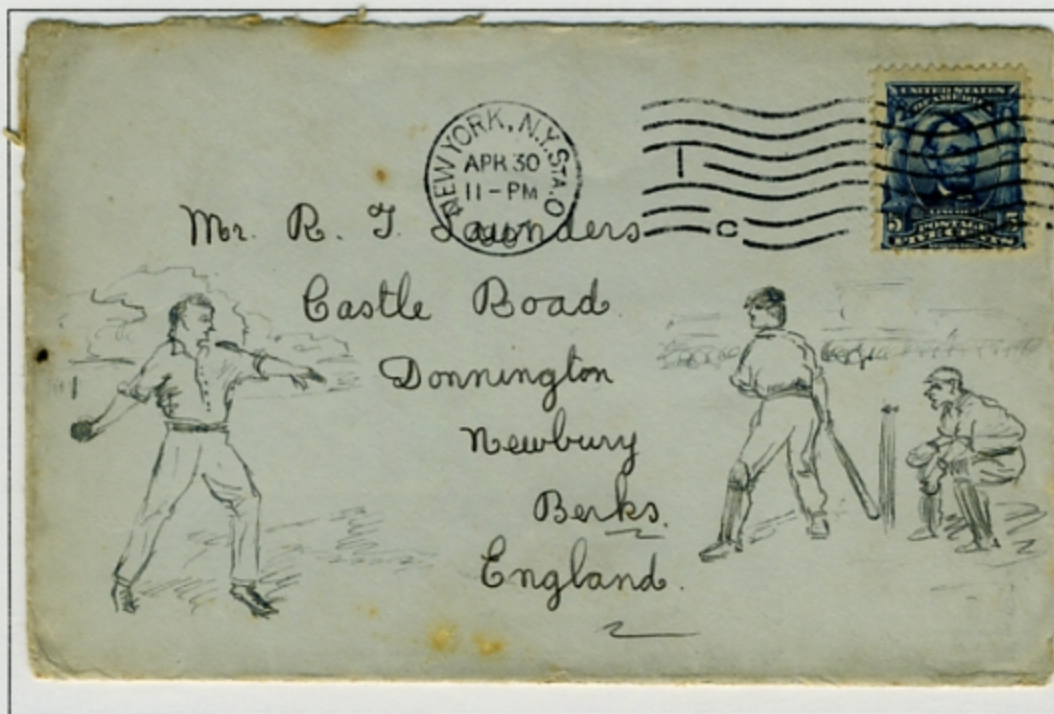 NEW YORK, N.Y. STA. O
APR 30
11-PM
UNITED STATES
OF AMERICA
5 POSTAGE 5
Mr. R. T. Saunders
Castle Road
Donnington
Newbury
Berks.
England.